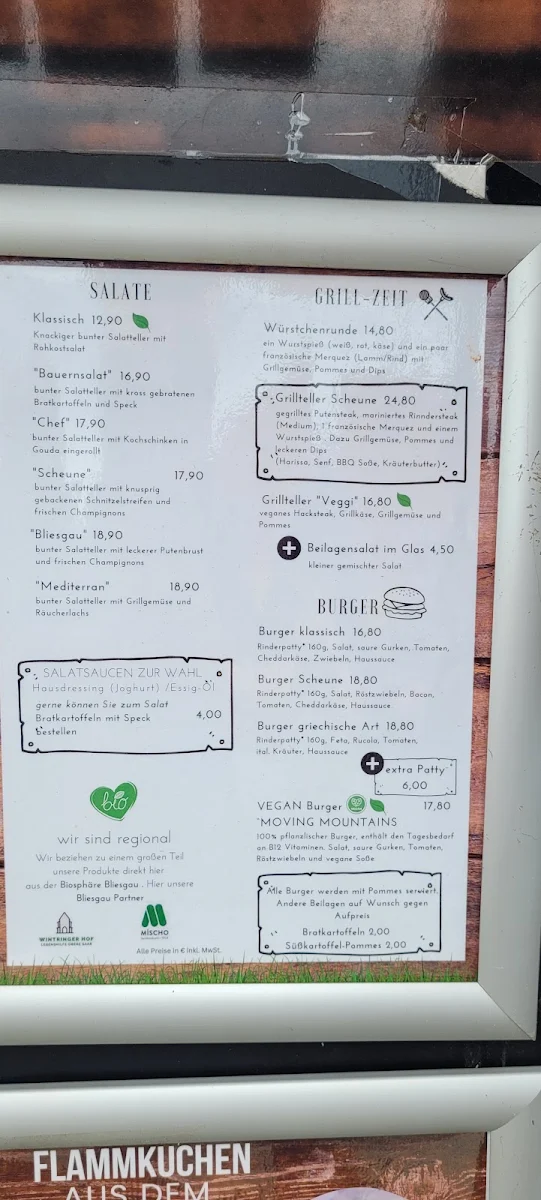 SALATE
Klassisch 12,90
Knackiger bunter Salatteller mit
Rohkostsalat
"Bauernsalat" 16,90
bunter Salatteller mit kross gebratenen
Bratkartoffeln und Speck
"Chef" 17,90
bunter Salatteller mit Kochschinken in
Gouda eingerollt
"Scheune" 17,90
bunter Salatteller mit knusprig
gebackenen Schnitzelstreifen und
frischen Champignons
"Bliesgau" 18,90
bunter Salatteller mit leckerer Putenbrust
und frischen Champignons
"Mediterran" 18,90
bunter Salatteller mit Grillgemüse und
Räucherlachs
SALATSAUCEN ZUR WAHL
Hausdressing (Joghurt) /Essig-Öl
gerne können Sie zum Salat
Bratkartoffeln mit Speck 4,00
bestellen
bio
wir sind regional
Wir beziehen zu einem großen Teil
unsere Produkte direkt hier
aus der Biosphäre Bliesgau . Hier unsere
Bliesgau Partner
WINTRINGER HOF
MISCHO
Alle Preise in € inkl. MwSt.
GRILL-ZEIT
Würstchenrunde 14,80
ein Wurstspieß (weiß, rot, käse) und ein paar
französische Merquez (Lamm/Rind) mit
Grillgemüse, Pommes und Dips
Grillteller Scheune 24,80
gegrilltes Putensteak, mariniertes Rinndersteak
(Medium), 1 französische Merquez und einem
Wurstspieß . Dazu Grillgemüse, Pommes und
leckeren Dips
(Harissa, Senf, BBQ Soße, Kräuterbutter)
Grillteller "Veggi" 16,80
veganes Hacksteak, Grillkäse, Grillgemüse und
Pommes
+ Beilagensalat im Glas 4,50
kleiner gemischter Salat
BURGER
Burger klassisch 16,80
Rinderpatty* 160g, Salat, saure Gurken, Tomaten,
Cheddarkäse, Zwiebeln, Haussauce
Burger Scheune 18,80
Rinderpatty* 160g, Salat, Röstzwiebeln, Bacon,
Tomaten, Cheddarkäse, Haussauce
Burger griechische Art 18,80
Rinderpatty* 160g, Feta, Rucola, Tomaten,
ital. Kräuter, Haussauce
+ extra Patty
6,00
VEGAN Burger 17,80
"MOVING MOUNTAINS
100% pflanzlischer Burger, enthält den Tagesbedarf
an B12 Vitominen, Salat, saure Gurken, Tomaten,
Röstzwiebeln und vegane Soße
Alle Burger werden mit Pommes serviert.
Andere Beilagen auf Wunsch gegen
Aufpreis
Bratkartoffeln 2,00
Süßkartoffel-Pommes 2,00
FLAMMKUCHEN
AUS DEM